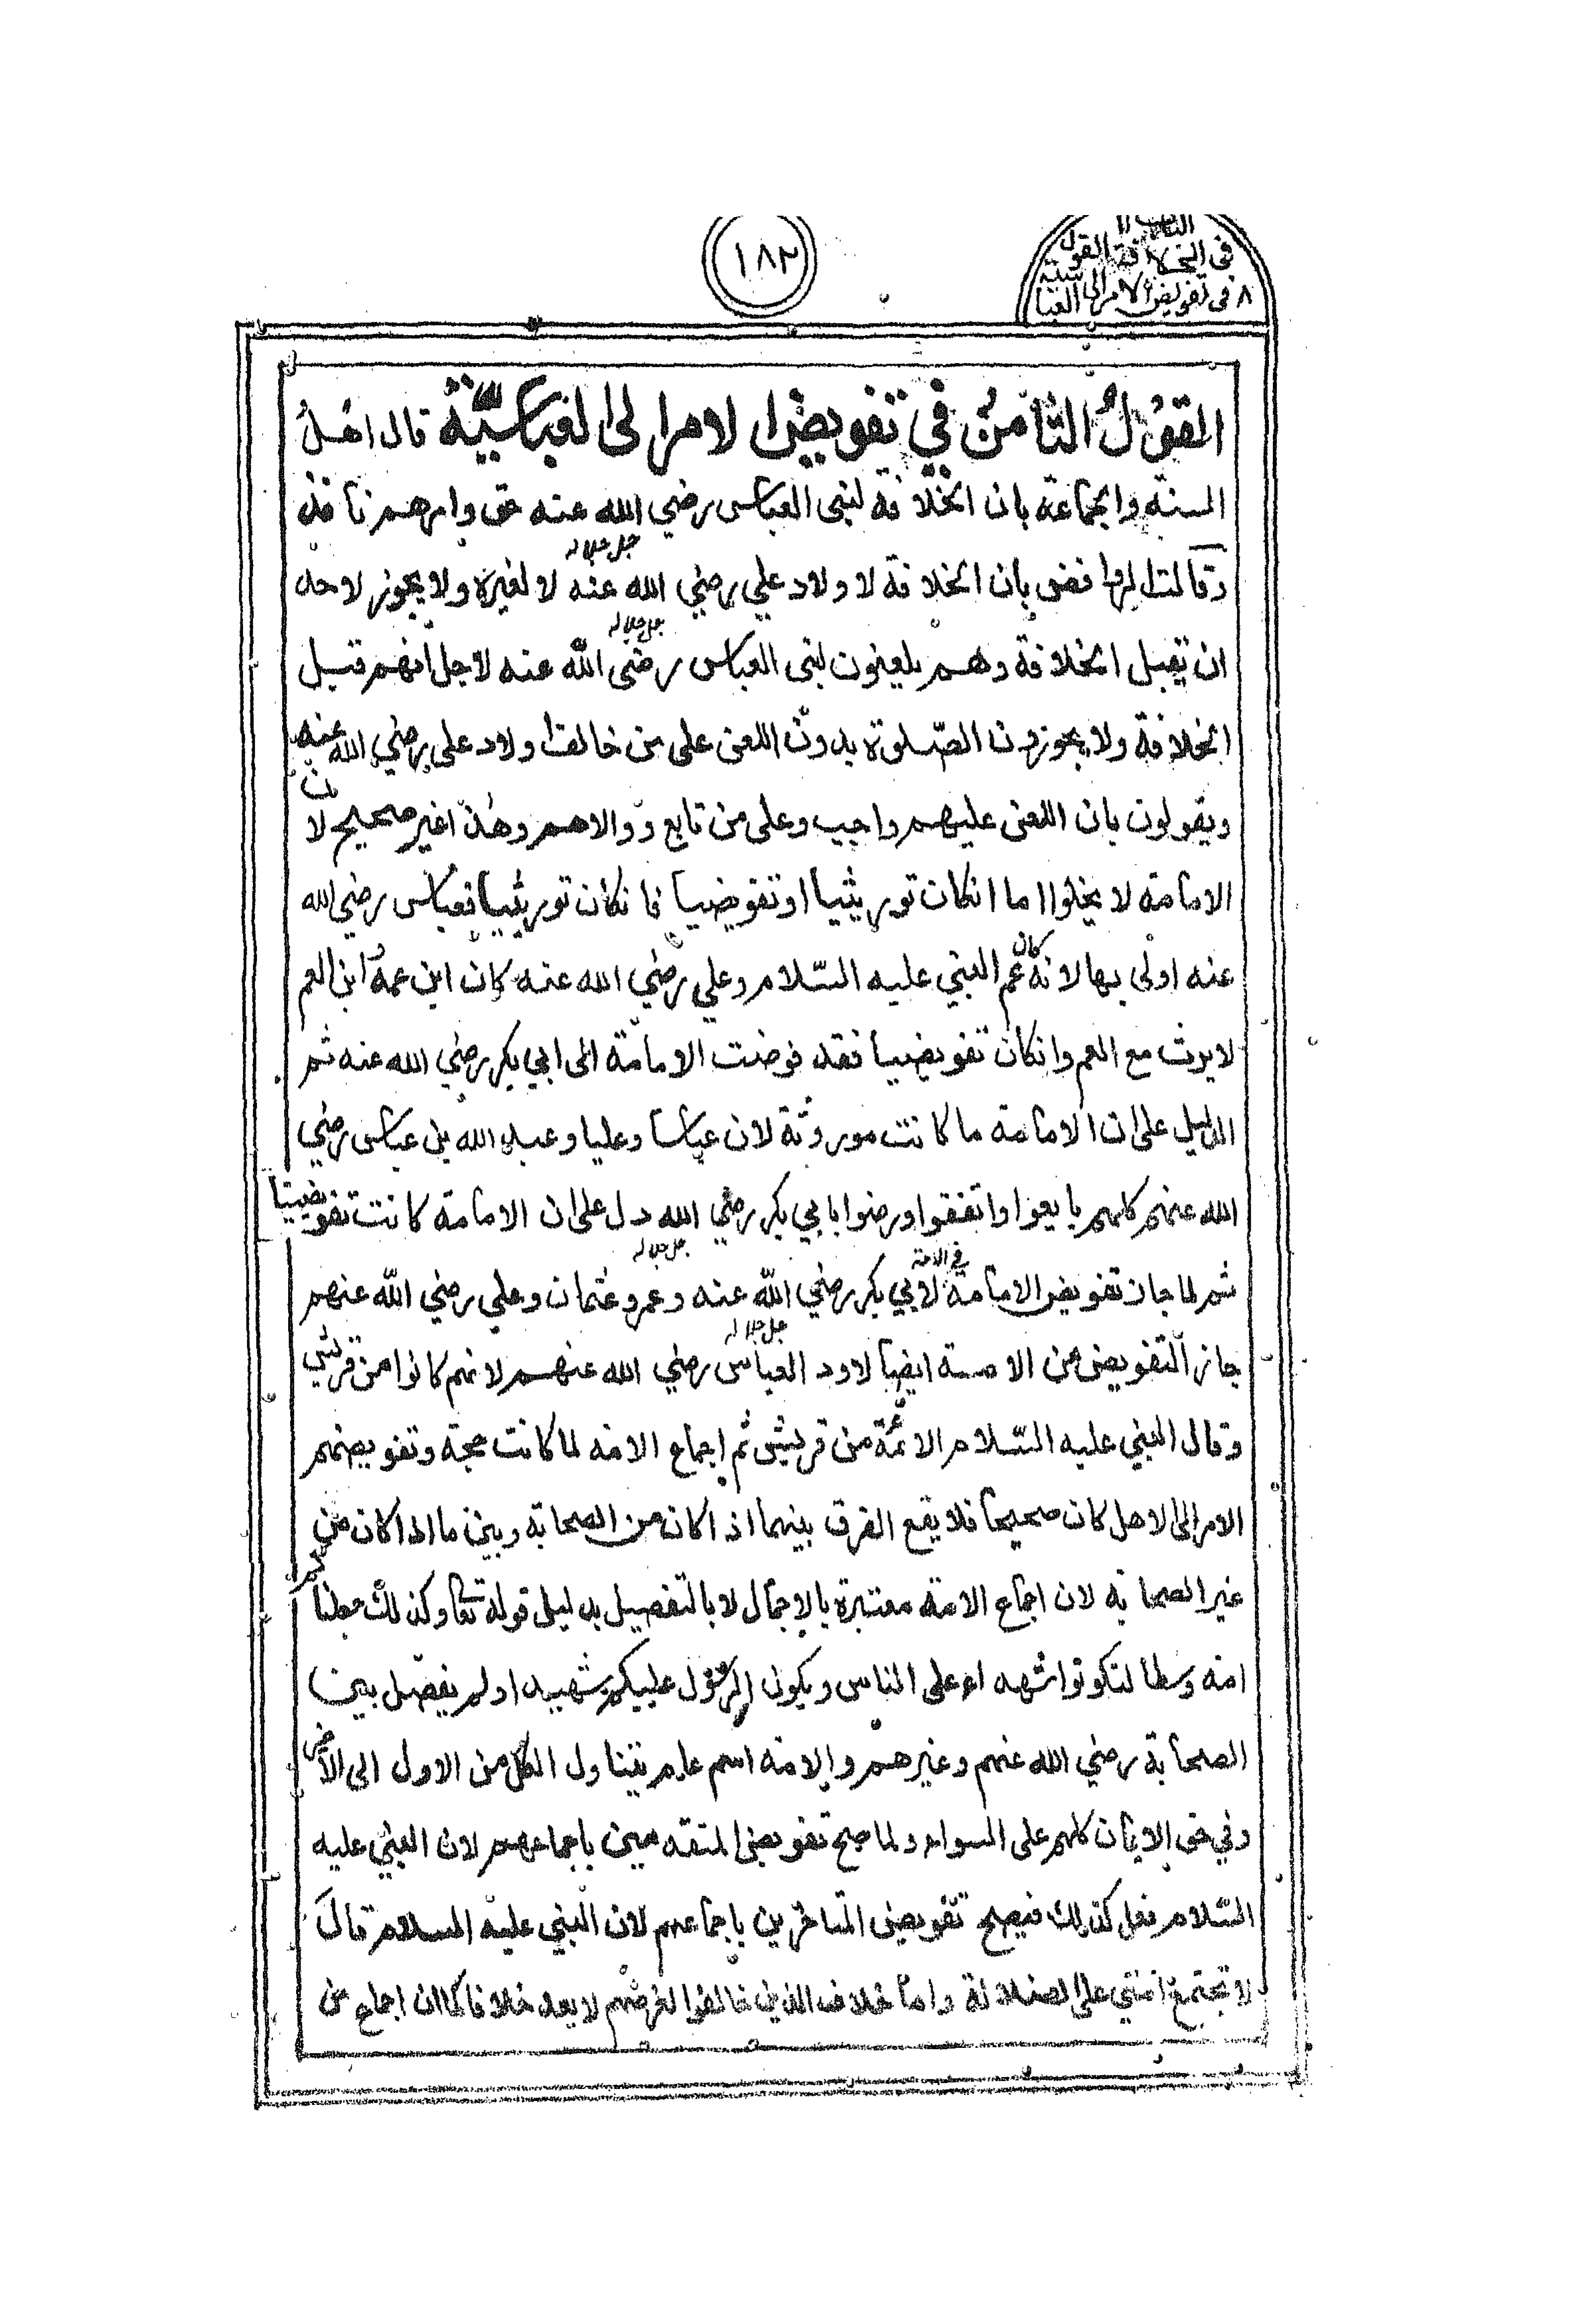 ١٨٢
في الخلافة القول
٨ في تفويض الامر الى العباسية
القول الثامن في تفويض الامر الى العباسية قال اهل
السنة والجماعة بان الخلافة لبني العباس رضي الله عنه حق وامرهم نافذ
جل جلاله
وقالت الروافض بان الخلافة لاولاد علي رضي الله عنه لا لغيره ولا يجوز لاحد
جل جلاله
ان تقبل الخلافة وهم يلعنون لبني العباس رضي الله عنه لاجل انهم قبل
الخلافة ولا يجوزون الصلوة بدون اللعن على من خالف اولاد على رضي الله عنه
ويقولون بان اللعن عليهم واجب وعلى من تابع ووالاهم وهذا غير صحيح لان
الامامة لا يخلوا اما انكان توريثيا او تفويضيا فانكان توريثيا فعباس رضي الله
عنه اولى بها لانه كان عم النبي عليه السلام وعلي رضي الله عنه كان ابن عمه وابن العم
لا يرث مع العم وانكان تفويضيا فقد فوضت الامامة الى ابي بكر رضي الله عنه ثم
الدليل على ان الامامة ما كانت موروثة لان عباسا وعليا وعبد الله بن عباس رضي
الله عنهم كلهم بايعوا واتفقوا ورضوا بابي بكر رضي الله دل على ان الامامة كانت تفويضيا
في الامة جل جلاله
ثم لما جاز تفويض الامامة لابي بكر رضي الله عنه وعمر وعثمان وعلي رضي الله عنهم
جل جلاله
جاز التفويض من الامة ايضا لاود العباس رضي الله عنهم لانهم كانوا من قريش
وقال النبي عليه السلام الائمة من قريش ثم اجماع الامة لما كانت حجة وتفويضهم
الامر الى الاهل كان صحيحا فلا يقع الفرق بينهما اذا كان من الصحابة وبين ما اذا كان من
غير الصحابة لان اجماع الامة معتبرة بالاجمال لا بالتفصيل بدليل قوله تعا وكذلك جعلناكم
امة وسطا لتكونوا شهداء على الناس ويكون الرسول عليكم شهيدا ولم يفصل بين
الصحابة رضي الله عنهم وغيرهم والامة اسم عام تتناول الكل من الاول الى الآخر
وفي حق الايمان كلهم على السواء ولما صح تفويض المتقدمين باجماعهم لان النبي عليه
السلام فعل كذلك فيصح تفويض المتاخرين باجماعهم لان النبي عليه السلام قال
لا تجتمع امتي على الضلالة واما خلاف الذين خالفوا لغرضهم لا يعد خلافا كما ان اجماع من